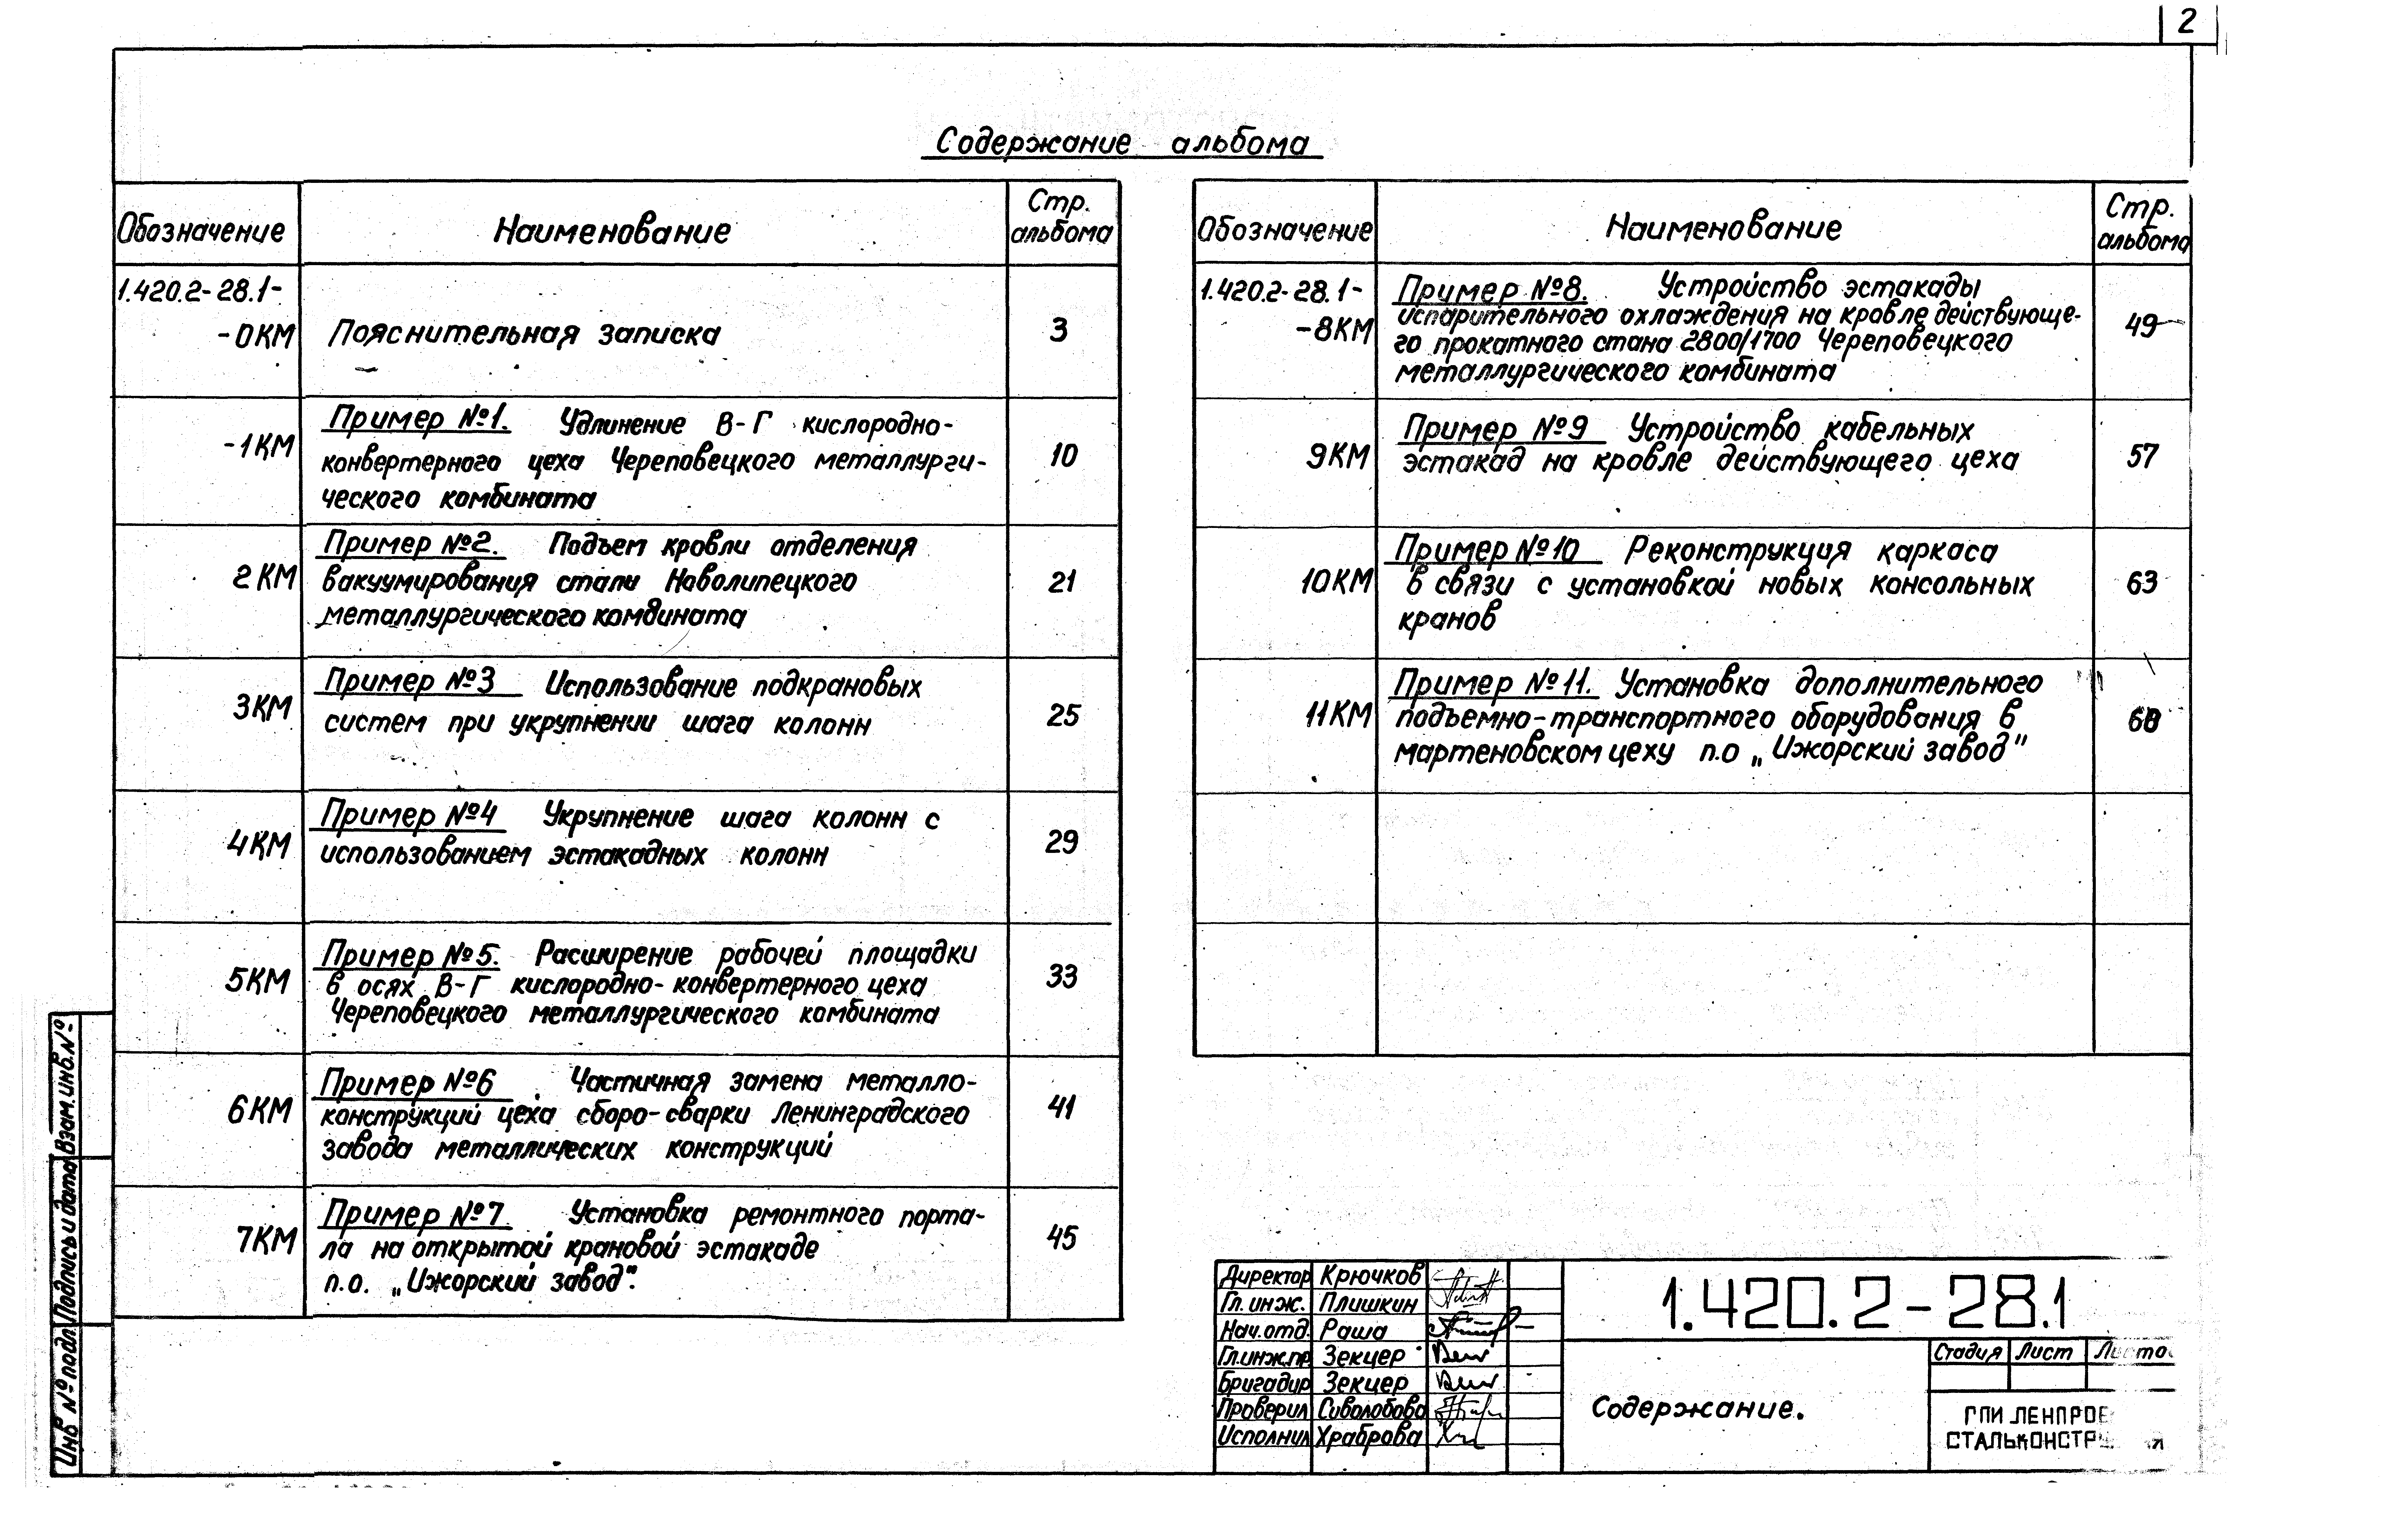 2
Содержание альбома
Обозначение
Наименование
Стр.
альбома
1.420.2-28.1-
-0КМ
Пояснительная записка
3
-1КМ
Пример №1. Удлинение В-Г кислородно-
конвертерного цеха Череповецкого металлурги-
ческого комбината
10
2КМ
Пример №2. Подъем кровли отделения
вакуумирования стали Новолипецкого
металлургического комбината
21
3КМ
Пример №3 Использование подкрановых
систем при укрупнении шага колонн
25
4КМ
Пример №4 Укрупнение шага колонн с
использованием эстакадных колонн
29
5КМ
Пример №5. Расширение рабочей площадки
в осях В-Г кислородно-конвертерного цеха
Череповецкого металлургического комбината
33
6КМ
Пример №6. Частичная замена металло-
конструкций цеха сборо-сварки Ленинградского
завода металлических конструкций
41
7КМ
Пример №7 Установка ремонтного порта-
ла на открытой крановой эстакаде
п.о. „Ижорский завод".
45
Обозначение
Наименование
Стр.
альбома
1.420.2-28.1-
-8КМ
Пример №8. Устройство эстакады
испарительного охлаждения на кровле действующе-
го прокатного стана 2800/1700 Череповецкого
металлургического комбината
49
9КМ
Пример №9 Устройство кабельных
эстакад на кровле действующего цеха
57
10КМ
Пример №10 Реконструкция каркаса
в связи с установкой новых консольных
кранов
63
11КМ
Пример №11. Установка дополнительного
подъемно-транспортного оборудования в
мартеновском цеху п.о „Ижорский завод"
68
Инв № подл. Подпись и дата Взам.инв.№
Директор Крючков
Гл. инж. Плишкин
Нач.отд. Раша
Гл.инж.пр. Зекцер
Бригадир Зекцер
Проверил Сиволобова
Исполнил Храброва
1.420.2-28.1
Содержание.
Стадия Лист Листо
ГПИ ЛЕНПРОЕ
СТАЛЬКОНСТР